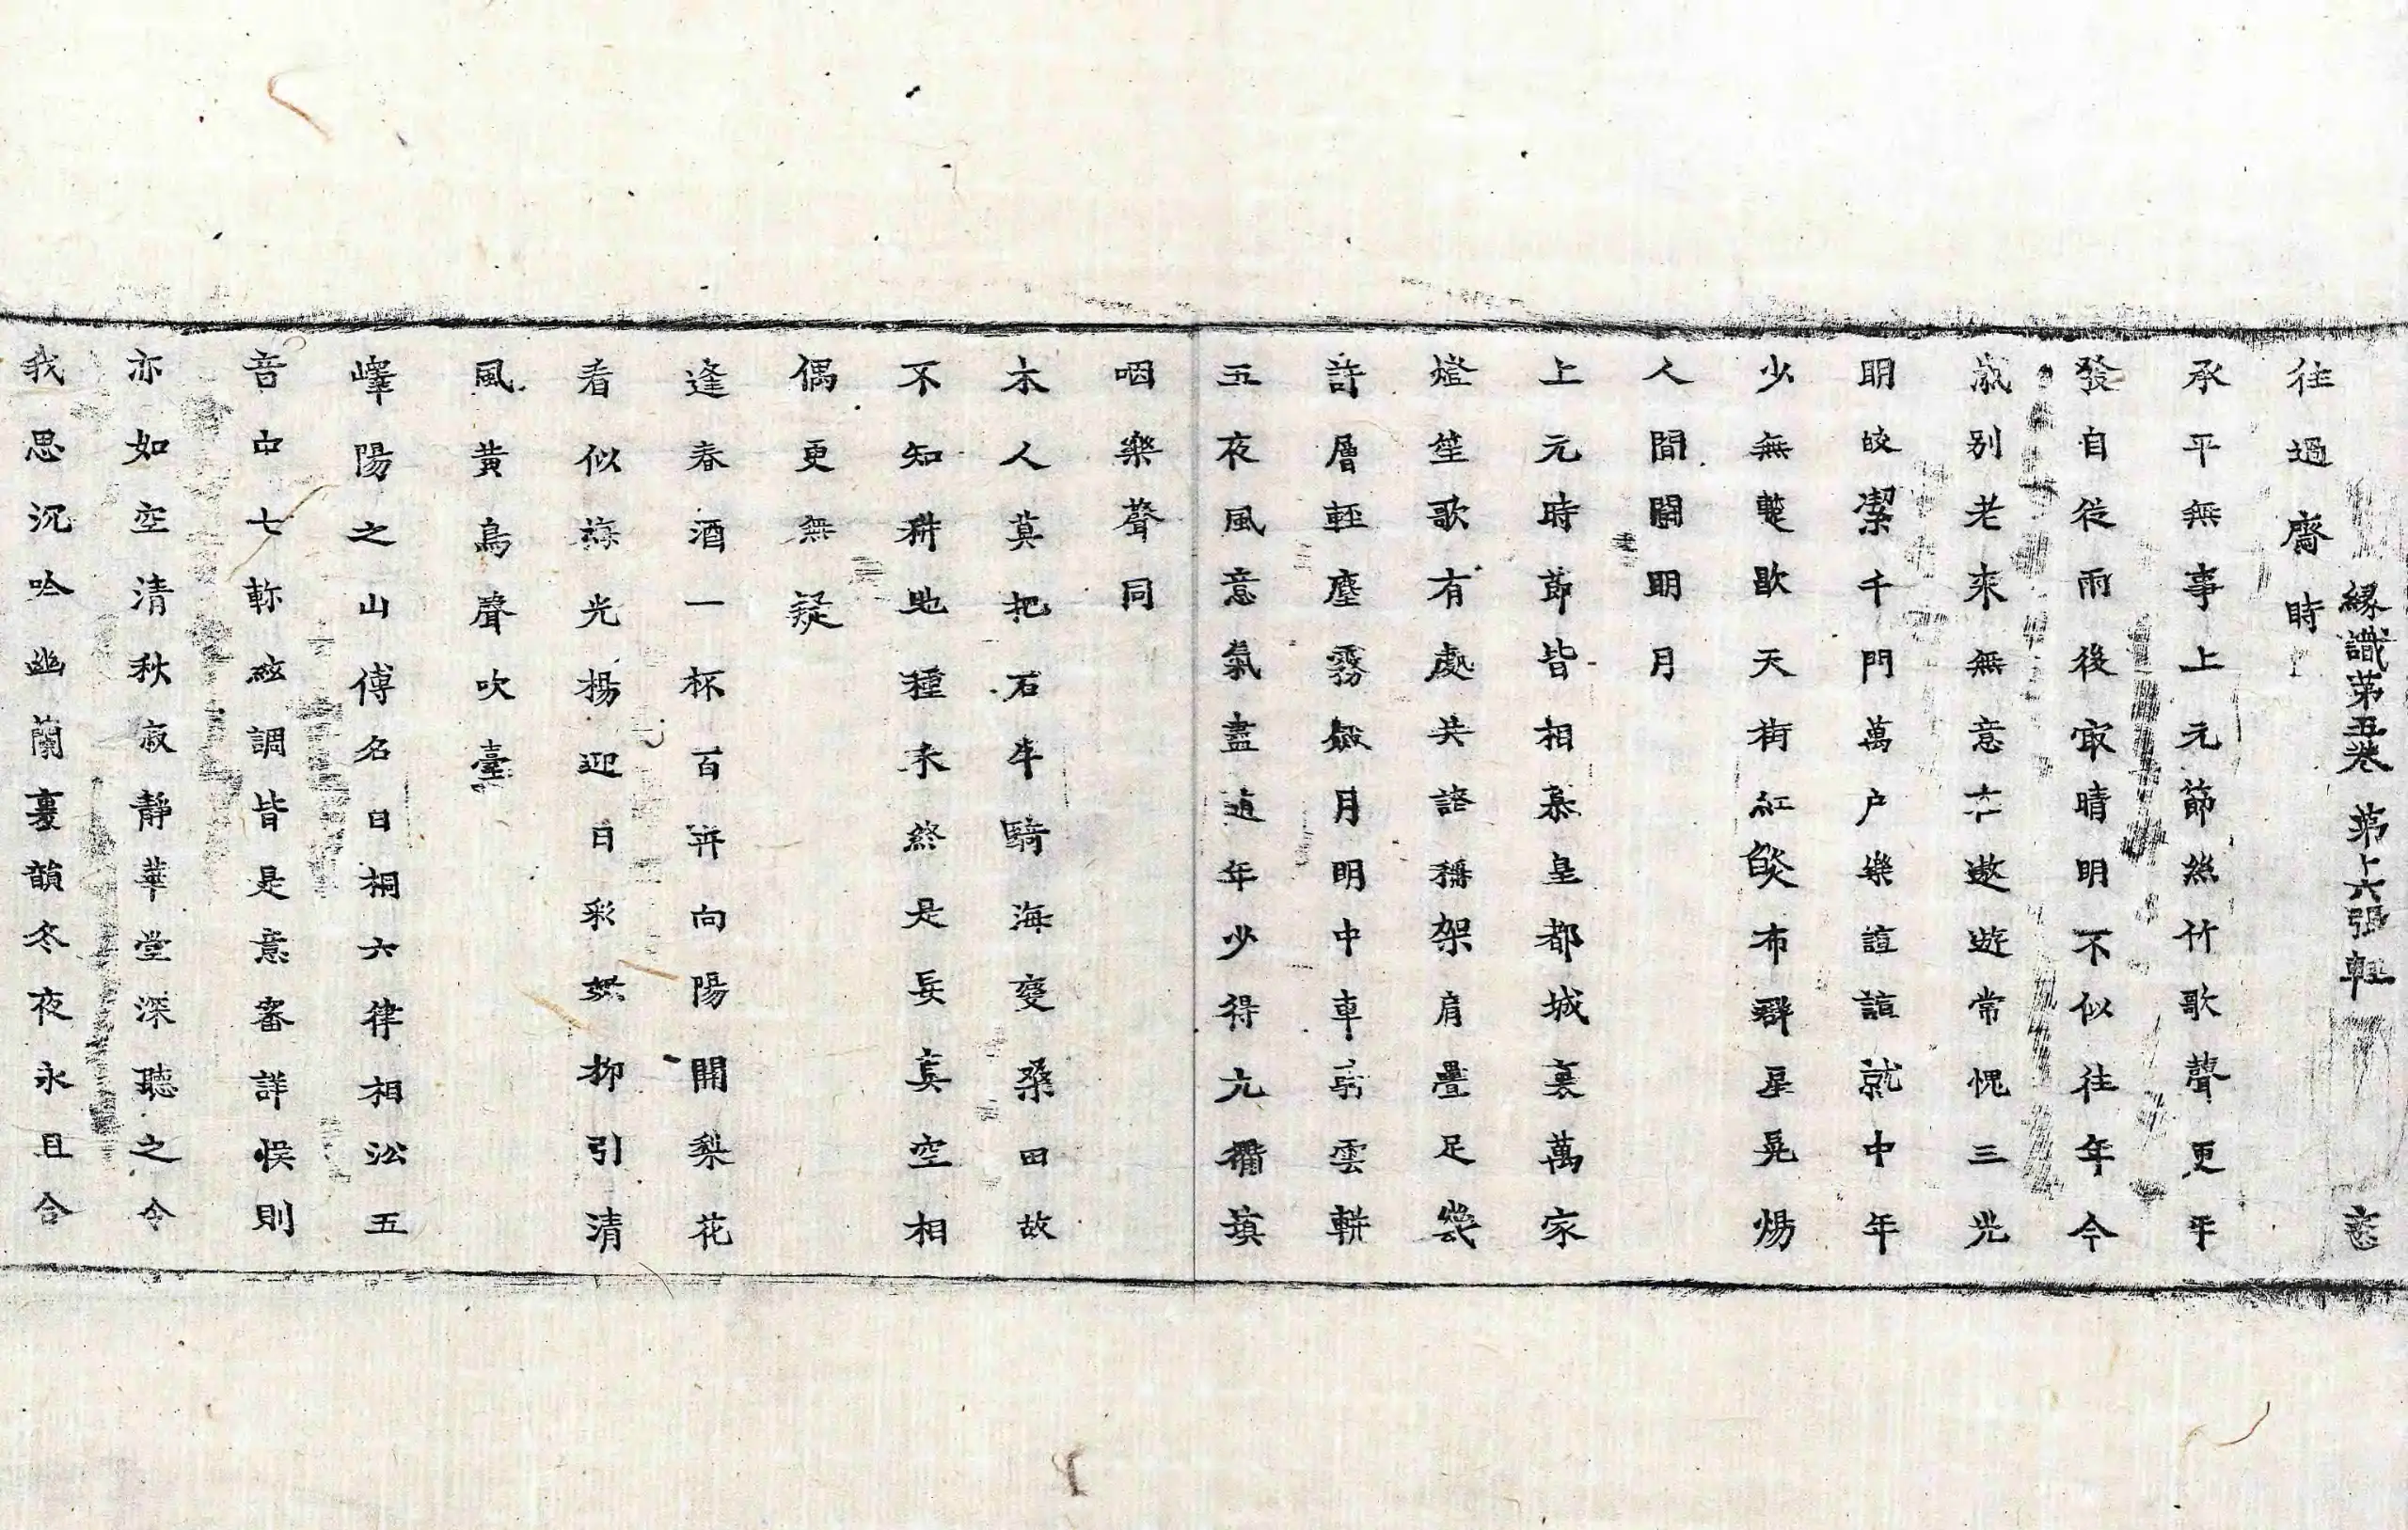 緣識第五卷 第十六張 軽 㤅
往過齋時
承平無事上元節絲竹歌聲更平
發自從雨後㝡晴明不似往年今
歲别老來無意六遨遊常愧三光
明皎潔千門萬户樂諠諠就中年
少無蹔歇天街紅𦦨布群星晃煬
人間闘明月
上元時節皆相慕皇都城裏萬家
燈笙歌有處共諮稱架肩疊足幾
許層輕塵霧斂月明中車 雲軿
五夜風意氣盡追年少得九衢䕯
咽樂聲同
木人莫把石牛騎海變桑田故
不知耕地種禾終是妄真空相
偶更無疑
逢春酒一杯百卉向陽開梨花
看似 光揚迎日彩 柳引清
風黃鳥聲吹臺
嶧陽之山傳名曰桐六律相㳂五
音中七 絃調皆是意審詳悞則
亦如空清秋寂靜華堂深聽之令
我思沉吟幽蘭裏韻冬夜永且合